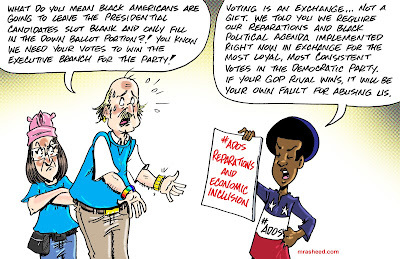 WHAT DO YOU MEAN BLACK AMERICANS ARE
GOING TO LEAVE THE PRESIDENTIAL
CANDIDATES SLOT BLANK AND ONLY FILL
IN THE DOWN BALLOT PORTION?! YOU KNOW
WE NEED YOUR VOTES TO WIN THE
EXECUTIVE BRANCH FOR THE PARTY!
VOTING IS AN EXCHANGE... NOT A
GIFT. WE TOLD YOU WE REQUIRE
OUR REPARATIONS AND BLACK
POLITICAL AGENDA IMPLEMENTED
RIGHT NOW IN EXCHANGE FOR THE
MOST LOYAL, MOST CONSISTENT
VOTES IN THE DEMOCRATIC PARTY.
IF YOUR GOP RIVAL WINS, IT WILL BE
YOUR OWN FAULT FOR ABUSING US.
#ADOS
REPARATIONS
AND
ECONOMIC
INCLUSION
#ADOS
mrasheed.com